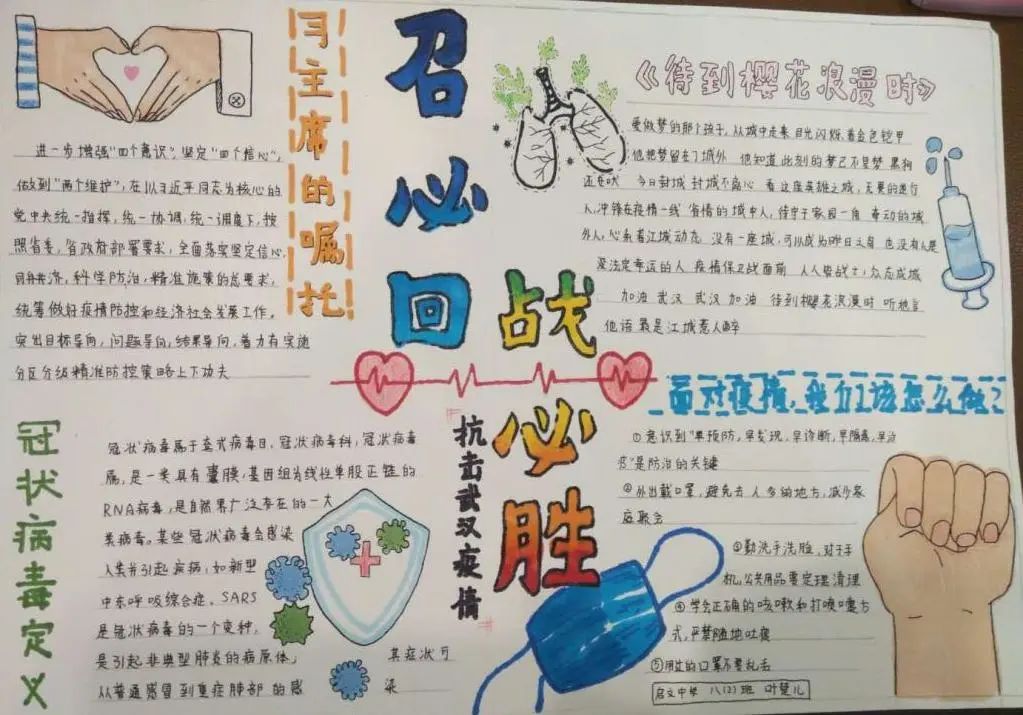 习主席的嘱托
进一步增强"四个意识",坚定"四个信心",
做到"两个维护",在以习近平同志为核心的
党中央统一指挥,统一协调,统一调度下,按
照省委,省政府部署要求,全面落实坚定信心,
同舟共济,科学防治,精准施策的总要求,
统筹做好疫情防控和经济社会发展工作,
突出目标导向,问题导向,结果导向,着力在实施
分区分级精准防控策略上下功夫
召必回
战必胜
抗击武汉疫情
《待到樱花浪漫时》
爱做梦的那个孩子,从城中走来 目光闪烁、着金色铠甲
他把梦留在了城外 他知道 此刻的梦已不是梦 黑狗
还在吠 今日封城 封城不离心 看 这座英雄之城,无畏的逆行
人,冲锋在疫情一线 省悟的城中人,待守于家园一角 牵动的城
外人,心系着江城动态 没有一座城,可以成为昨日之岛 也没有人是
没法定幸运的人 疫情保卫战面前 人人皆战士,众志成城
加油 武汉 武汉 加油 待到樱花浪漫时 听他言
他语 最是江城惹人醉
面对疫情,我们该怎么做?
①意识到"早预防,早发现,早诊断,早隔离,早治
疗"是防治的关键
②外出戴口罩,避免去人多的地方,减少家
庭聚会
③勤洗手洗脸,对于手
机,公共用品要定理清理
④学会正确的咳嗽和打喷嚏方
式,严禁随地吐痰
⑤用过的口罩不要乱丢
启文中学 八(2)班 叶楚儿
冠状病毒定义
冠状病毒属于套式病毒目、冠状病毒科,冠状病毒
属,是一类具有囊膜,基因组为线性单股正链的
RNA病毒,是自然界广泛存在的一大
类病毒。某些冠状病毒会感染
人类并引起疾病,如新型
中东呼吸综合症、SARS
是冠状病毒的一个变种,
是引起非典型肺炎的病原体, 其症状可
从普通感冒到重症肺部的感染